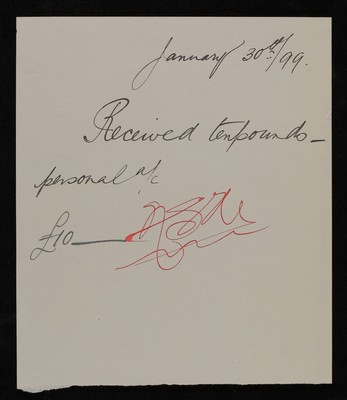 January 30th/99.
Received ten pounds —
personal a/c
£10